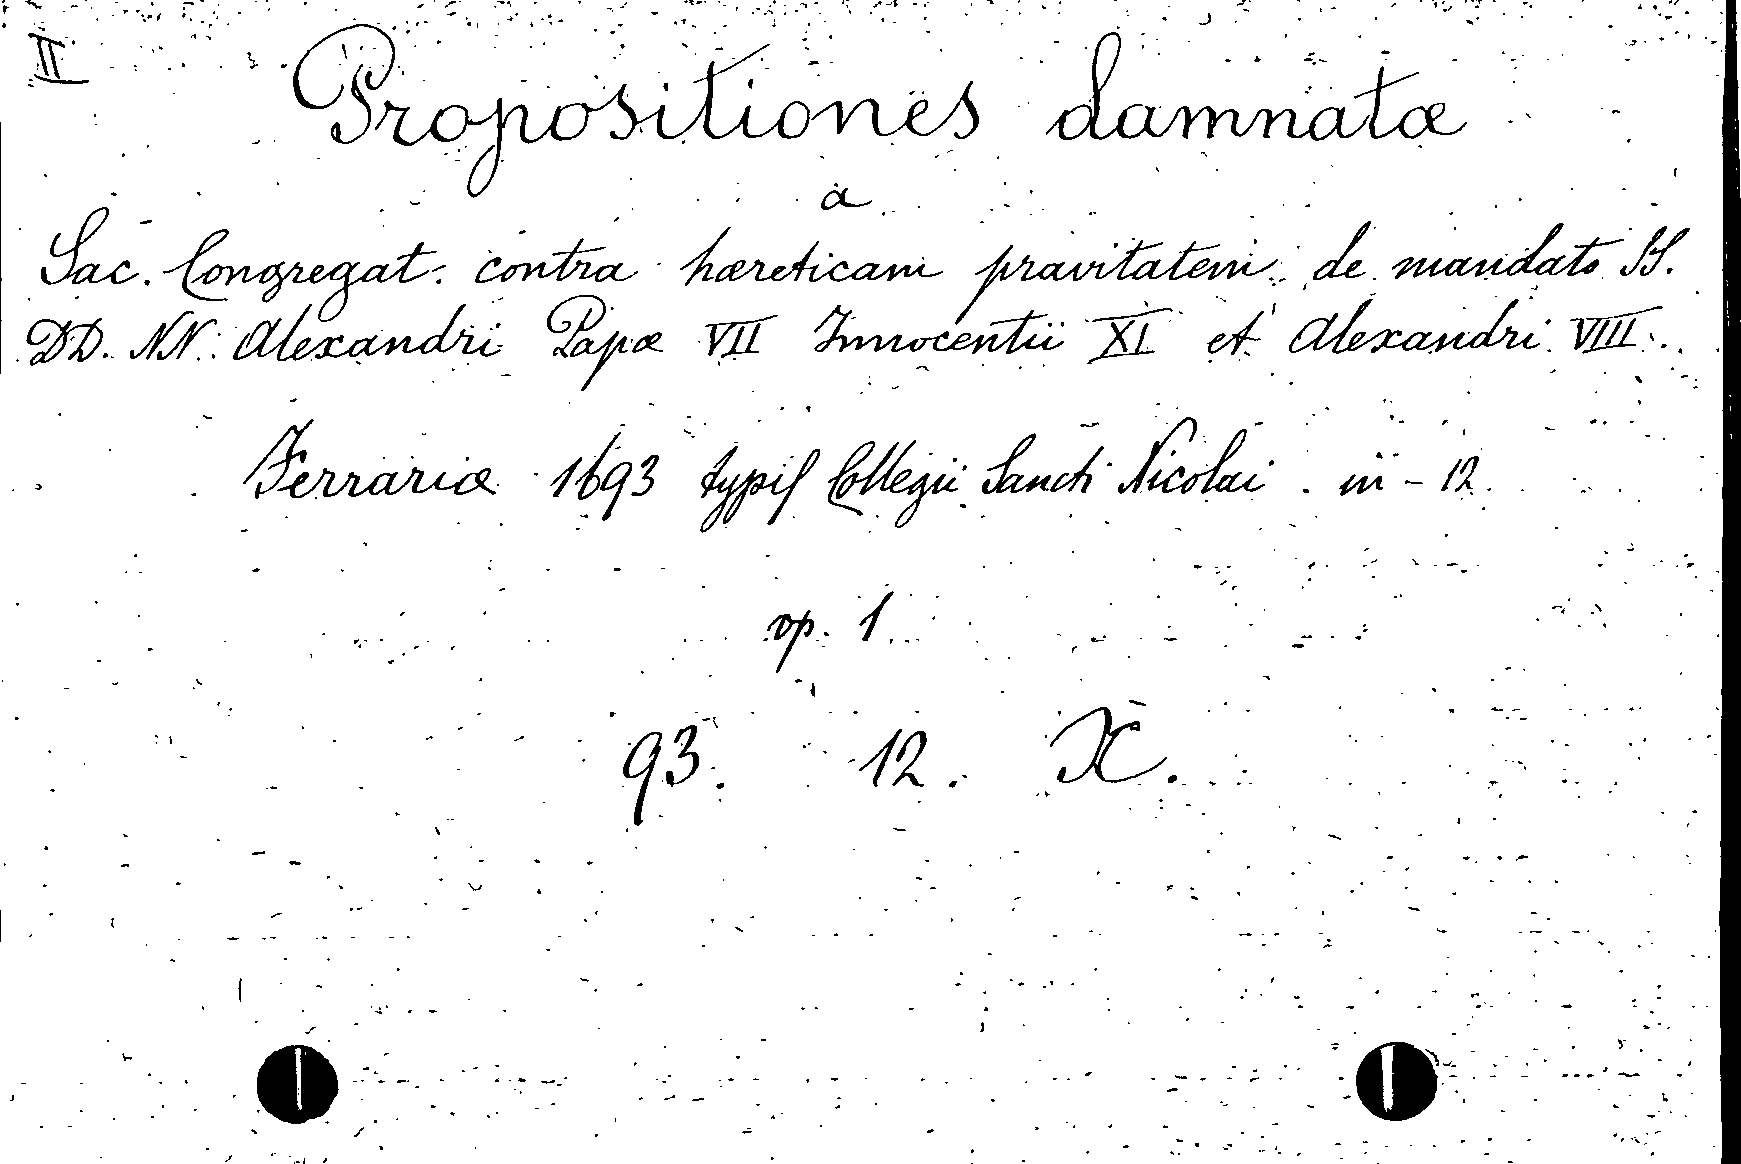 II
Propositiones damnatæ
a
Sac. Congregat. contra hæreticam pravitatem de mandato SS.
DD. NN. Alexandri Papæ VII Innocentii XI et Alexandri VIII.
Ferrariæ 1693 typis Collegii Sancti Nicolai in-12
op. 1
93. 12. X.